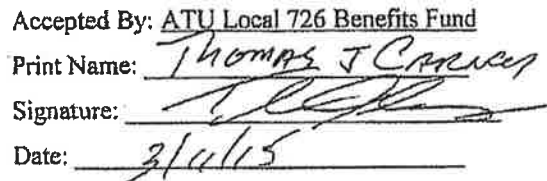 Accepted By: ATU Local 726 Benefits Fund
Print Name: THOMAS J CARNEY
Signature:
Date: 3/11/15